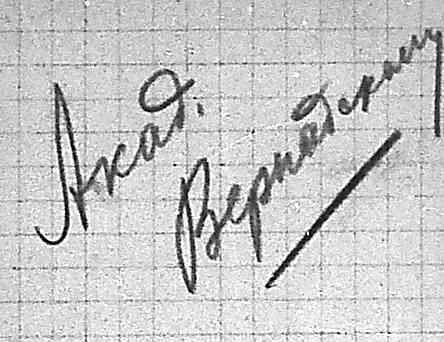 Акад.
Вернадскому